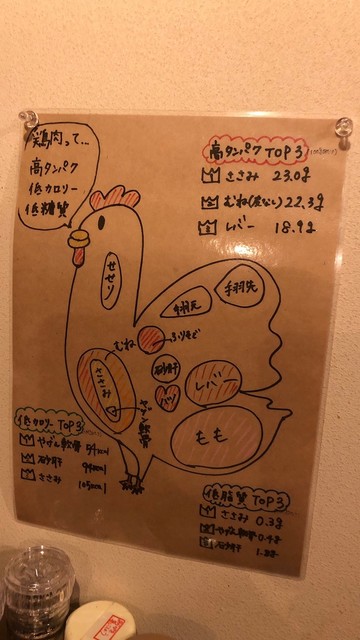 鶏肉って…
高タンパク
低カロリー
低糖質
高タンパク TOP3
1 ささみ 23.0g
2 むね(皮なし) 22.3g
3 レバー 18.9g
せせり
手羽元
手羽先
むね
ふりそで
ささみ
砂肝
ハツ
レバー
やげん軟骨
もも
低カロリー TOP3
1 やげん軟骨 54kcal
2 砂肝 94kcal
3 ささみ 105kcal
低脂質 TOP3
1 ささみ 0.8g
2 やげん軟骨 0.4g
3 砂肝